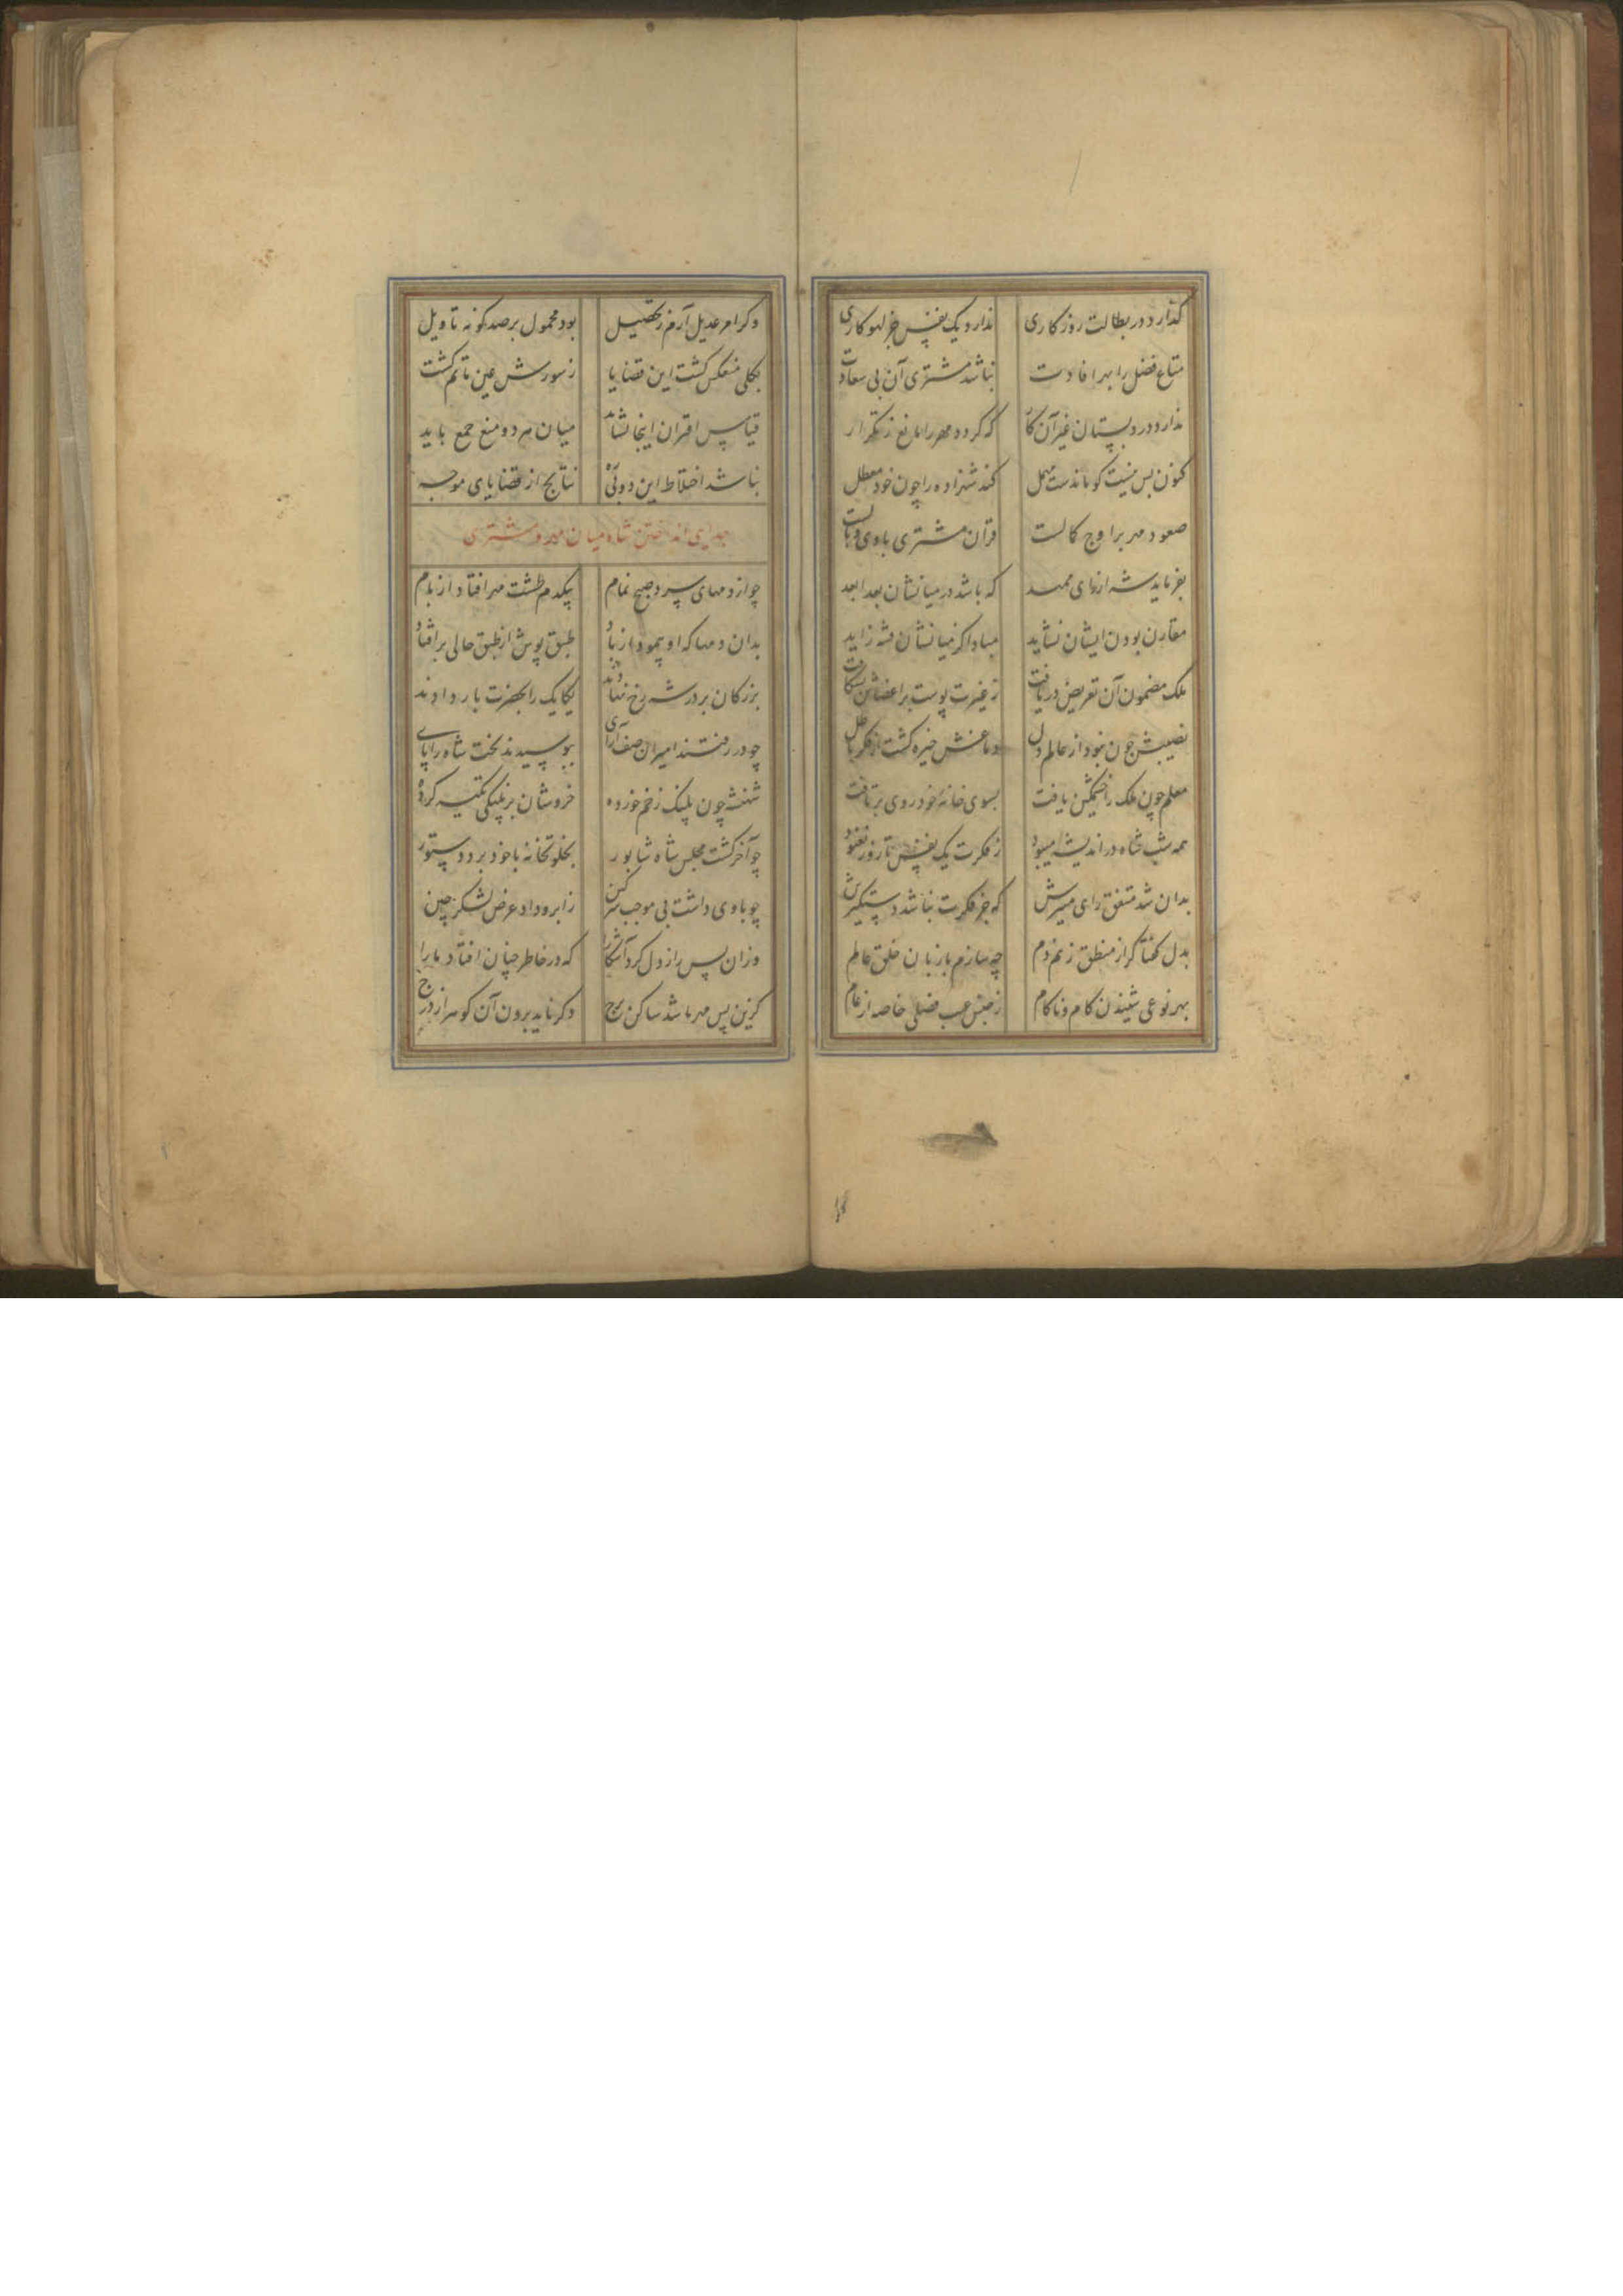 گذارد در بطالت روزکاری ندارد یک نفس جز لهو کاری
متاع فضل را بهر افادت نباشد مشتری آن بی سعادت
ندارد در دبستان غیر آن کار که گردد مهر را مانع ز تکرار
کنون بس نیست کو ماندست مهمل کند شهزاده را چون خود معطل
صعود مهر بر اوج کمالست قران مشتری با وی وبالست
بفرماید شه از رای ممهد که باشد در میانشان بعد ابعد
مقارن بودن ایشان نشاید مبادا کز میانشان فتنه زاید
ملک مضمون آن تعریض دریافت ز غیرت پوست بر اعضاش بشکافت
نصیبش چون نبود از عالم دل دماغش خیره گشت از فکر باطل
معلم چون ملک را خشمگین یافت بسوی خانه خود روی برتافت
همه شب شاه در اندیشه میبود ز فکرت یک نفس تا روز نغنود
بدان شد متفق رای منیرش که جز فکرت نباشد دستگیرش
بدل گفتا گر از منطق زنم دم چه سازم با زبان خلق عالم
بهر نوعی شنیدن کام و ناکام ز جنس عیب فضلی خاصه از عام
وگر امر عدیل آرم ز تحصیل بود محمول بر صد گونه تاویل
بکلی منعکس گشت این قضایا ز سورش عین ماتم گشت
قیاس اقتران اینجا نشاید میان هر دو منع جمع باید
نباشد اختلاط این دو نتایج از قضایای موجبه
جدایی انداختن شاه میان مهر و مشتری
چو از دمهای سرد صبح نمام بیکدم طشت مهر افتاد از بام
بدان دمها که او پیمود از باد طبق پوش از طبق حالی بر افتاد
بزرکان بر در شه رخ نهادند یکایک را بحضرت بار دادند
چو در رفتند امیران صف آرای ببوسیدند تخت شاه را پای
شهنشه چون پلنگ زخم خورده خروشان بر پلنگی تکیه کرده
چو آخر گشت مجلس شاه شاپور بخلوتخانه با خود برد دستور
چو با وی داشت بی موجب سر کین ز ابرو داد عرض لشکر چین
وزان پس راز دل کرد آشکارا که در خاطر چنان افتاد ما را
کزین پس مهر باشد ساکن برج دگر ناید برون آن گوهر از درج